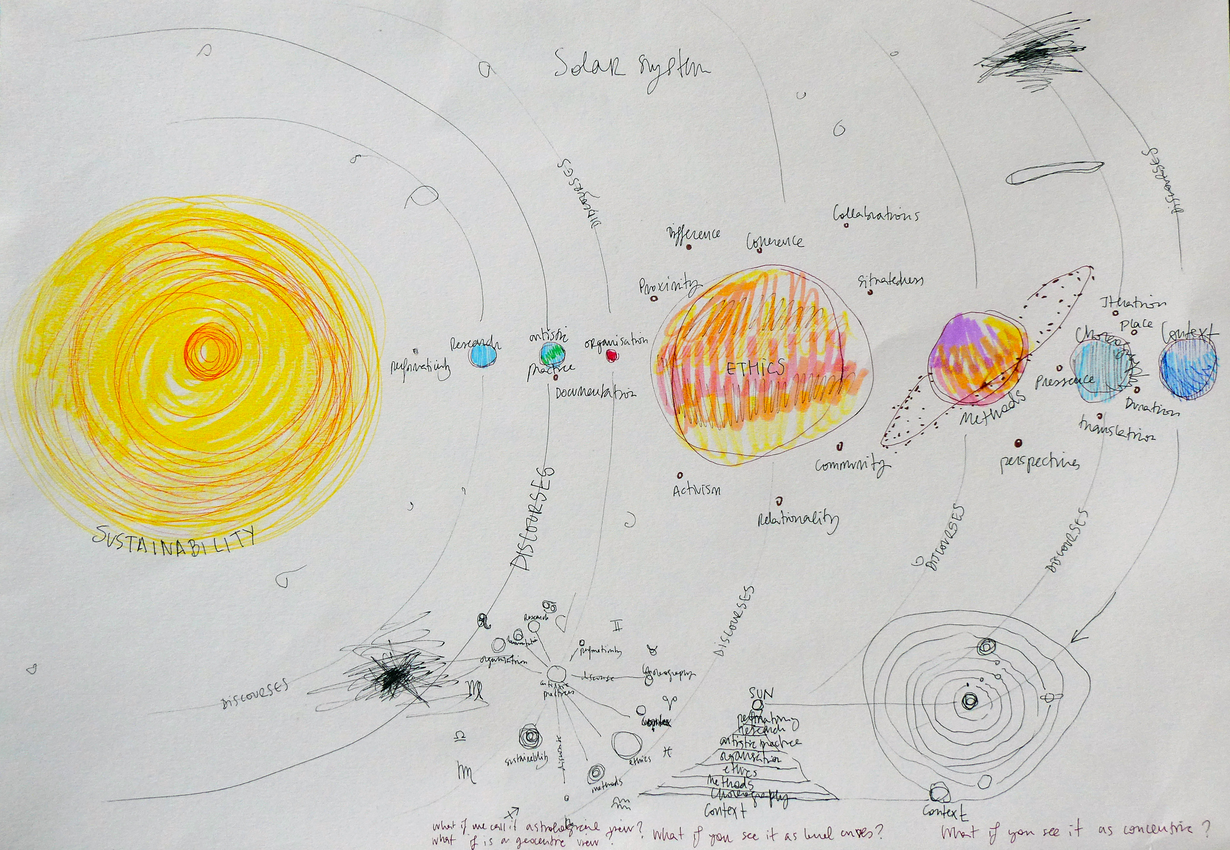 Solar system
DISCOURSES
DISCOURSES
Difference
Coherence
Collabrations
Proximity
Situatedness
performativity
Research
artistic
practice
Documentation
organisation
ETHICS
Community
Activism
Relationality
Methods
perspectives
Iteration
place
Choreography
Context
Pressence
Duration
translation
SUSTAINABILITY
DISCOURSES
DISCOURSES
DISCOURSES
DISCOURSES
DISCOURSES
Research
organisation
performativity
discourse
choreography
artistic
practices
sustainability
discourse
ethics
methods
SUN
performativity
research
artistic practice
organisation
ethics
methods
choreography
Context
Context
what if we call it view?
what if is a geocentric view?
What if you see it as level ?
What if you see it as concentric?